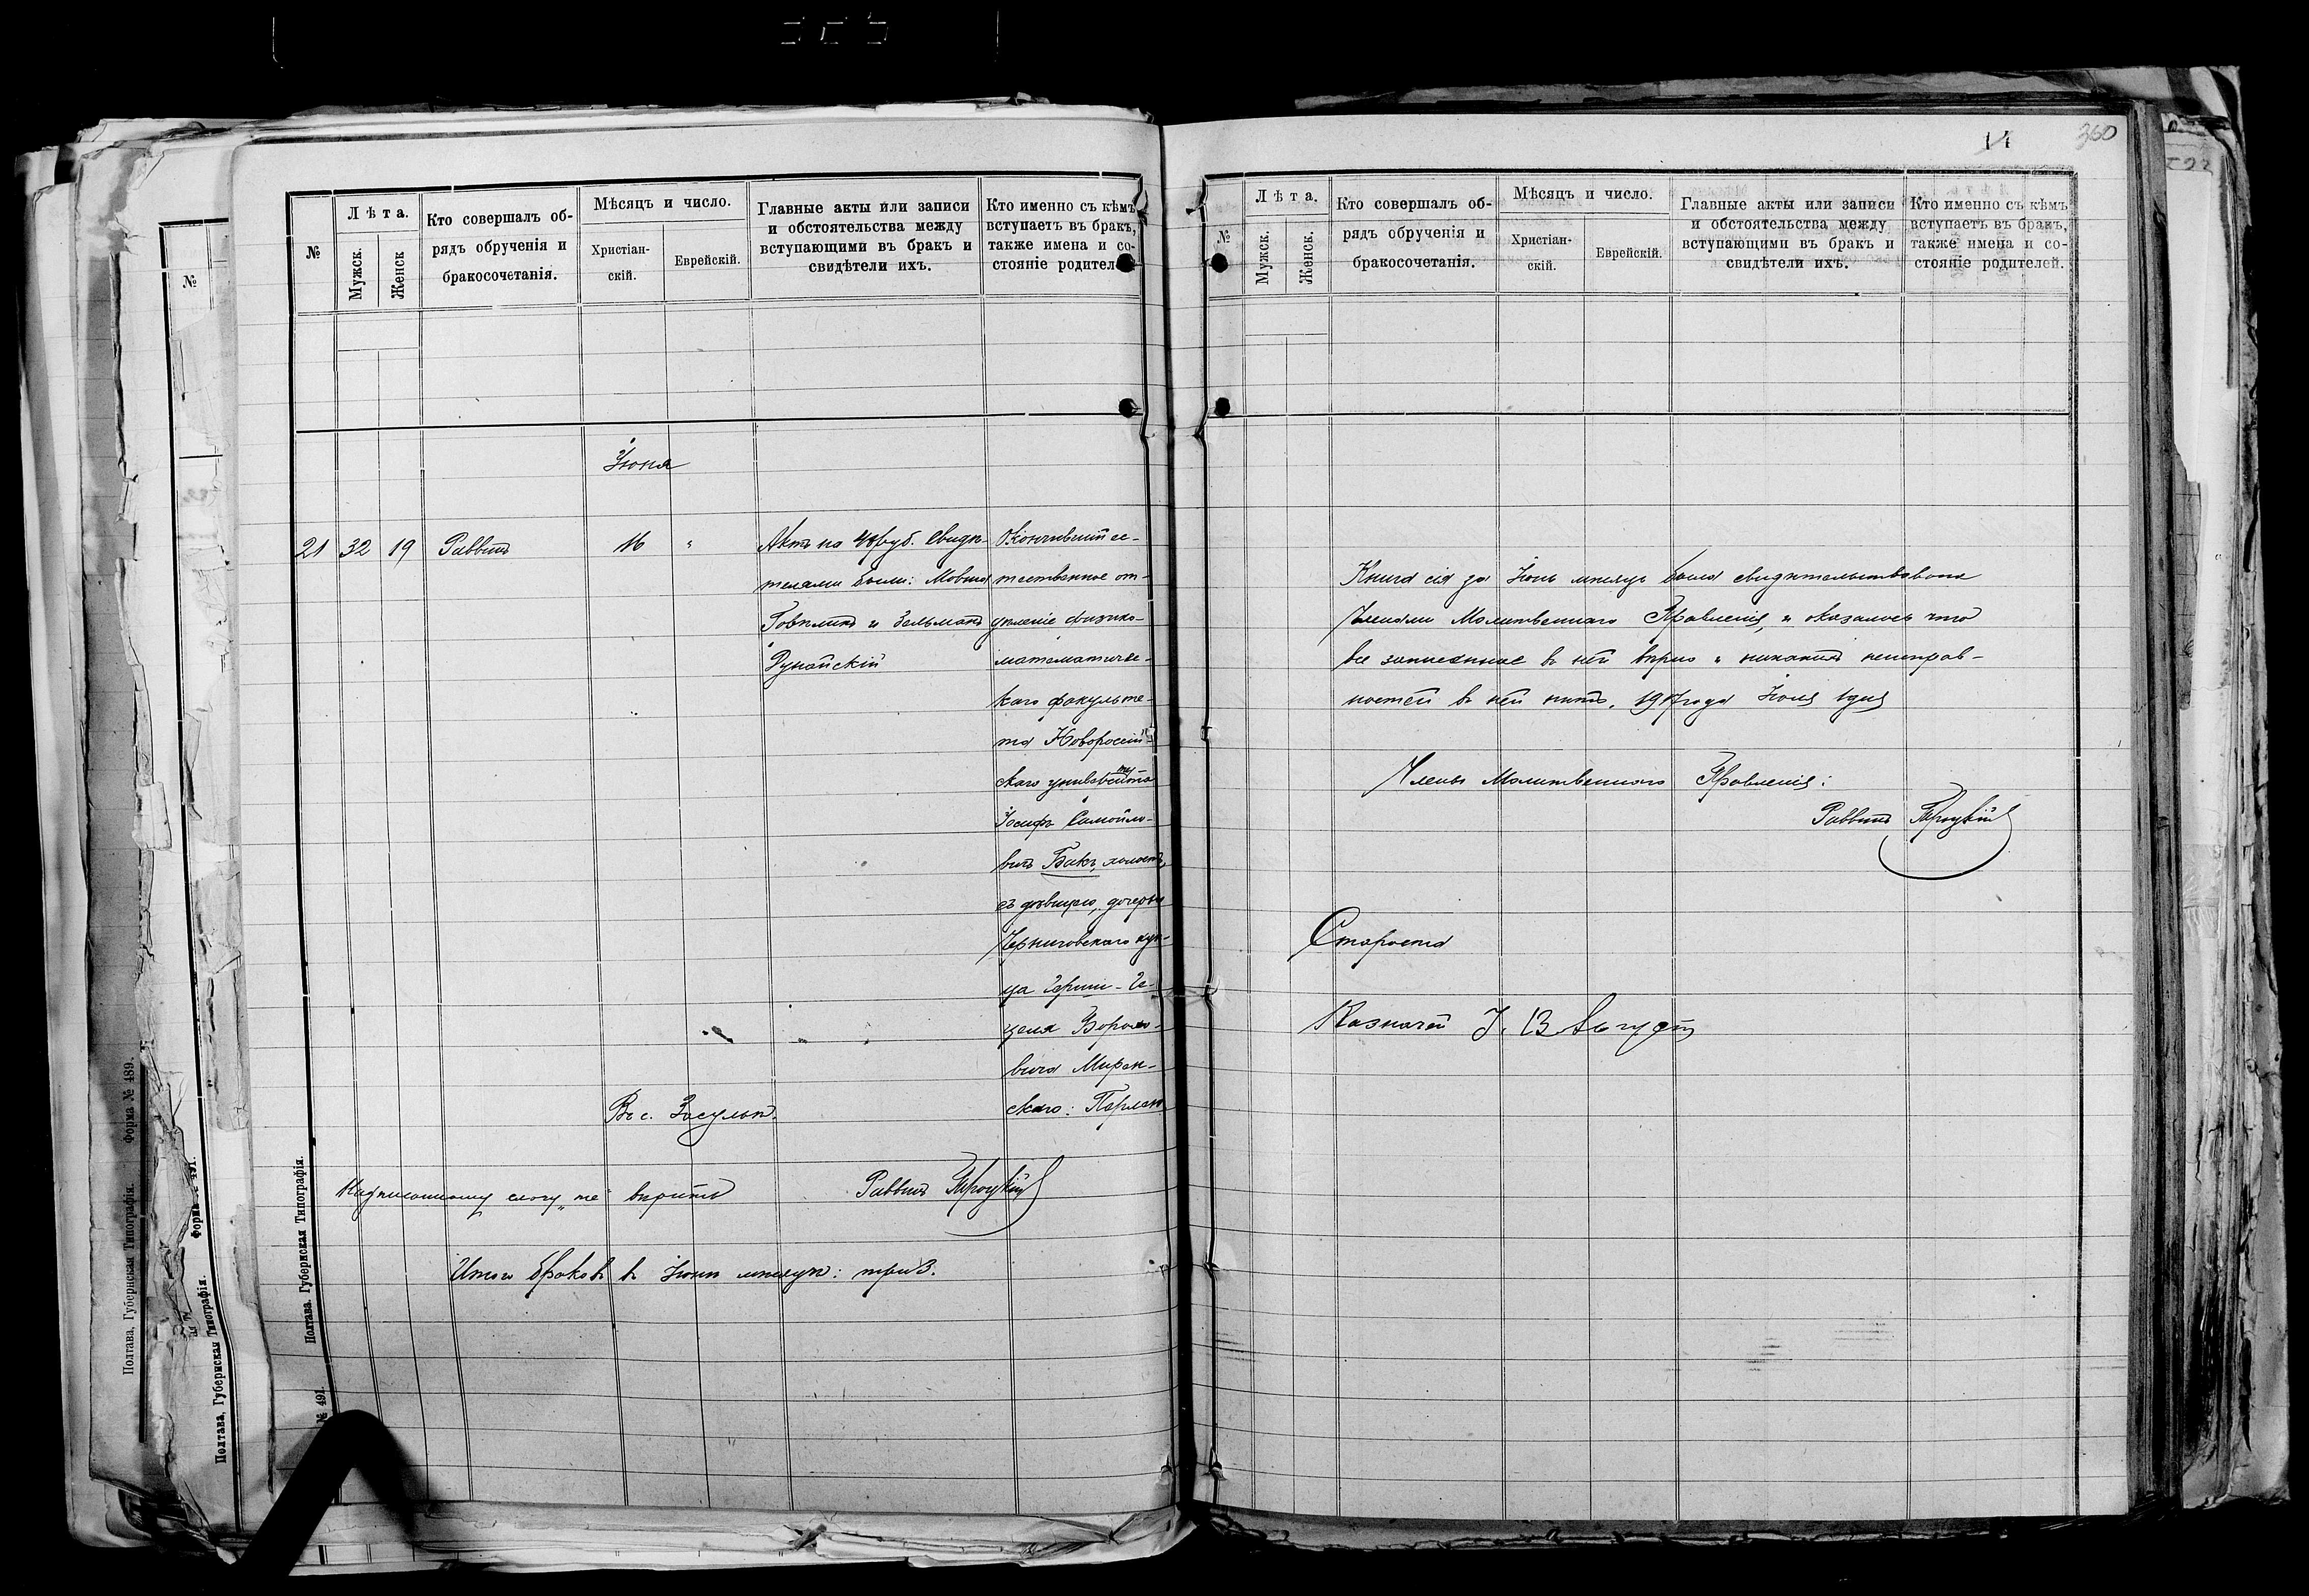 №
Лѣта.
Мужск.
Женск
Кто совершалъ об-
рядъ обрученія и
бракосочетанія.
Мѣсяцъ и число.
Христіан-
скій.
Еврейскій.
Главные акты или записи
и обстоятельства между
вступающими въ бракъ и
свидѣтели ихъ.
Кто именно съ кѣмъ
вступаетъ въ бракъ,
также имена и со-
стояніе родител
Іюня
21 32 19 Раввинъ 16 "
Актъ на руб. Свидѣ-
телями были: Мовша
и Зельманъ
Дунайскій
Окончившій ес-
тественное от-
дѣленіе физико-
математичес-
каго факульте-
та Новороссій-
скаго универси
Іосифъ Самойло-
вичъ Бакъ, холостъ,
съ дѣвицею, дочерью
Черниговскаго куп-
ца Герша-Ге-
целя Борохо-
вича Мирен-
скаго: Перлею
Въ с. Засульи.
Надписанному слогу „те" вѣрить Раввинъ Троцкій
Итого браковъ въ Іюнѣ мѣсяцѣ: три 3.
Полтава. Губернская Типографія.
№ 491.
Полтава, Губернская Типографія. Форма № 489.
№
Полтава, Губернская Типографія.
14
360
№
Лѣта.
Мужск.
Женск.
Кто совершалъ об-
рядъ обрученія и
бракосочетанія.
Мѣсяцъ и число.
Христіан-
скій.
Еврейскій.
Главные акты или записи
и обстоятельства между
вступающими въ бракъ и
свидѣтели ихъ.
Кто именно съ кѣмъ
вступаетъ въ бракъ,
также имена и со-
стояніе родителей.
Книга сія за Іюнь мѣсяцъ была свидѣтельствована
Членами Молитвеннаго Правленія, и оказалось что
все записанное въ ней вѣрно и никакихъ неисправ-
ностей въ ней нѣтъ. 1907 года Іюля 1 дня
Члены Молитвеннаго Правленія:
Раввинъ Троцкій
Староста
Казначей